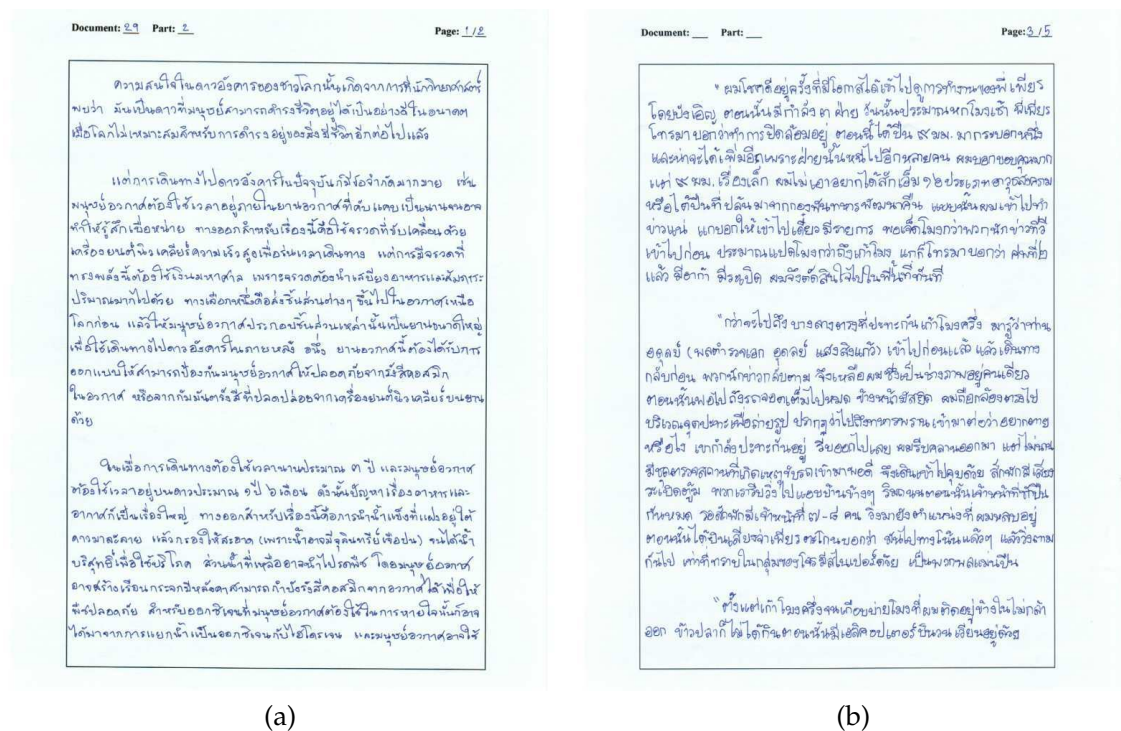 Document: 29 Part: 2 Page: 1/2
ความสนใจในดาวอังคารของชาวโลกนั้นเกิดจากการที่นักวิทยาศาสตร์
พบว่า มันเป็นดาวที่มนุษย์สามารถดำรงชีวิตอยู่ได้เป็นอย่างดีในอนาคต
เมื่อโลกไม่เหมาะสมสำหรับการดำรงอยู่ของสิ่งมีชีวิตอีกต่อไปแล้ว
แต่การเดินทางไปดาวอังคารในปัจจุบันก็มีข้อจำกัดมากมาย เช่น
มนุษย์อวกาศต้องใช้เวลาอยู่ภายในยานอวกาศที่คับแคบเป็นนานจนอาจ
ทำให้รู้สึกเบื่อหน่าย ทางออกสำหรับเรื่องนี้คือใช้จรวดที่ขับเคลื่อนด้วย
เครื่องยนต์นิวเคลียร์ความเร็วสูงเพื่อร่นเวลาเดินทาง แต่การมีจรวดที่
ทรงพลังนี้ต้องใช้เงินมหาศาล เพราะจรวดต้องนำเสบียงอาหารและสัมภาระ
ปริมาณมากไปด้วย ทางเลือกหนึ่งคือส่งชิ้นส่วนต่างๆ ขึ้นไปในอวกาศเหนือ
โลกก่อน แล้วให้มนุษย์อวกาศประกอบชิ้นส่วนเหล่านั้นเป็นยานขนาดใหญ่
เพื่อใช้เดินทางไปดาวอังคารในภายหลัง อนึ่ง ยานอวกาศนี้ต้องได้รับการ
ออกแบบให้สามารถป้องกันมนุษย์อวกาศให้ปลอดภัยจากรังสีคอสมิก
ในอวกาศ หรือจากกัมมันตรังสีที่ปลดปล่อยจากเครื่องยนต์นิวเคลียร์บนยาน
ด้วย
ในเมื่อการเดินทางต้องใช้เวลานานประมาณ ๓ ปี และมนุษย์อวกาศ
ต้องใช้เวลาอยู่บนดาวประมาณ ๑ปี ๖ เดือน ดังนั้นปัญหาเรื่องอาหารและ
อากาศก็เป็นเรื่องใหญ่ ทางออกสำหรับเรื่องนี้คือการนำน้ำแข็งที่แฝงอยู่ใต้
ดาวมาละลาย แล้วกรองให้สะอาด (เพราะน้ำอาจมีจุลินทรีย์เจือปน) จนได้น้ำ
บริสุทธิ์เพื่อใช้บริโภค ส่วนน้ำที่เหลืออาจนำไปรดพืช โดยมนุษย์อวกาศ
อาจสร้างเรือนกระจกมีหลังคาสามารถกำบังรังสีคอสมิกจากอวกาศได้เพื่อให้
พืชปลอดภัย สำหรับออกซิเจนที่มนุษย์อวกาศต้องใช้ในการหายใจนั้นก็อาจ
ได้มาจากการแยกน้ำเป็นออกซิเจนกับไฮโดรเจน และมนุษย์อวกาศอาจใช้
(a)
Document: Part: Page: 3/5
"ผมโชคดีอยู่ครั้งที่มีโอกาสได้เข้าไปดูการทำงานของพี่เพียร
โดยบังเอิญ ตอนนั้นมีกำลัง ๓ ฝ่าย วันนั้นประมาณหกโมงเช้า พี่เพียร
โทรมาบอกว่าทำการปิดล้อมอยู่ ตอนนี้ได้ปืน ๙ มม. มากระบอกหนึ่ง
และน่าจะได้เพิ่มอีกเพราะฝ่ายนั้นหนีไปอีกหลายคน ผมบอกขอบคุณมาก
แต่ ๙ มม. เรื่องเล็ก ผมไม่เอาอยากได้สักเอ็ม ๑๖ ประเภทอาวุธสงคราม
หรือได้ปืนที่ปล้นมาจากกองพันทหารพัฒนาคืน แบบนั้นผมเข้าไปทำ
ข่าวแน่ แกบอกให้เข้าไปเดี๋ยวมีรายการ พอเจ็ดโมงกว่าพวกนักข่าวทีวี
เข้าไปก่อน ประมาณแปดโมงกว่าถึงเก้าโมง แกก็โทรมาบอกว่า ศพที่๒
แล้ว มีอาก้า มีระเบิด ผมจึงตัดสินใจไปในพื้นที่ทันที
"กว่าจะไปถึงบางลางตรงที่ปะทะกันเก้าโมงครึ่ง มารู้ว่าท่าน
อดุลย์ (พลตำรวจเอก อดุลย์ แสงสิงแก้ว) เข้าไปก่อนแล้ว แล้วเดินทาง
กลับก่อน พวกนักข่าวกลับตาม จึงเหลือผมซึ่งเป็นช่างภาพอยู่คนเดียว
ตอนนั้นพอไปถึงรถจอดเต็มไปหมด ข้างหน้ามีสติต ผมถือกล้องตรงไป
บริเวณจุดปะทะเพื่อถ่ายรูป ปรากฏว่าไปถึงทหารพรานเข้ามาต่อว่าอยากตาย
หรือไง เขากำลังปะทะกันอยู่ รีบออกไปเลย ผมรีบคลานออกมา แต่ไม่นาน
มีชุดตรวจสถานที่เกิดเหตุขับรถเข้ามาพอดี จึงเดินเข้าไปคุยด้วย สักพักมีเสียง
ระเบิดตู้ม พวกเรารีบวิ่งไปแอบบ้านข้างๆ ริมถนนตอนนั้นเจ้าหน้าที่ชักปืน
กันหมด รอสักพักมีเจ้าหน้าที่ ๗-๘ คน วิ่งมายังตำแหน่งที่ผมหลบอยู่
ตอนนั้นได้ยินเสียงจ่าเพียรตะโกนบอกว่า มันไปทางโน้นแล้วๆ แล้ววิ่งตาม
กันไป เท่าที่ทราบในกลุ่มของโจรมีสไนเปอร์ด้วย เป็นพวกพลแม่นปืน
"ตั้งแต่เก้าโมงครึ่งจนเกือบบ่ายโมงที่ผมติดอยู่ข้างในไม่กล้า
ออก ข้าวปลาก็ไม่ได้กินตอนนั้นมีเฮลิคอปเตอร์บินวนเวียนอยู่ด้วย
(b)